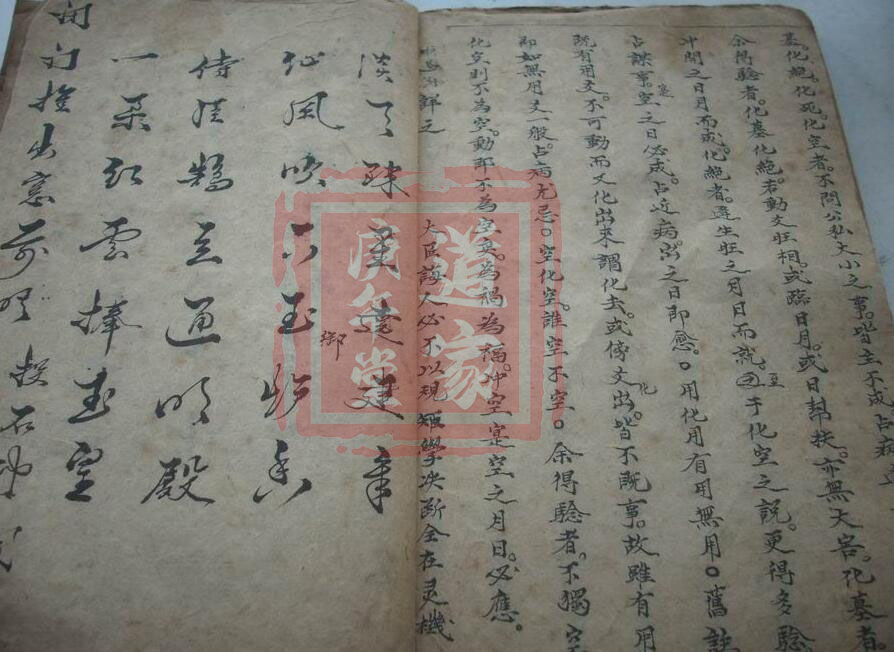 墓。化絕。化死。化空者。不問公私大小之事。皆主不成占病
余得驗者。化墓化絕。若動爻旺相。或臨日月。或日幫扶。亦無大害。化墓者。
冲開之日月而成。化絕者。逢生旺之月日而就。至于化空之說。更得多驗
占謀事。寔空之日必成。占近病。出之日即愈。○用化用有用無用○舊註
既有用爻。不可動而又化出來謂化去。或傍爻化出。皆不既事。故雖有用
即如無用爻一般。占病尤忌。○空化空。誰空不空。○余得驗者。不獨空
化空則不為空。動那不為空矣。為禍為福。冲空寔空之月日。必應。
詳之 大匠誨人必不以規矩學決斷全在灵機
淡月疎星遶建章
仙風吹下玉炉香
御
侍臣鵠立通明殿
一朵紅雲捧玉皇
閉門推出窓
前 投石冲
道家